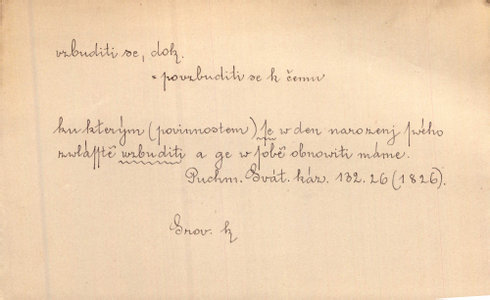 vzbuditi se, dok.
• povzbuditi se k čemu
ku kterým (povinnostem) ſe w den narozenj ſwého
zwláſſtě wzbuditi a ge w ſobě obnowiti máme.
Puchm. Svát. káz. 132. 26 (1826).
Srov. k